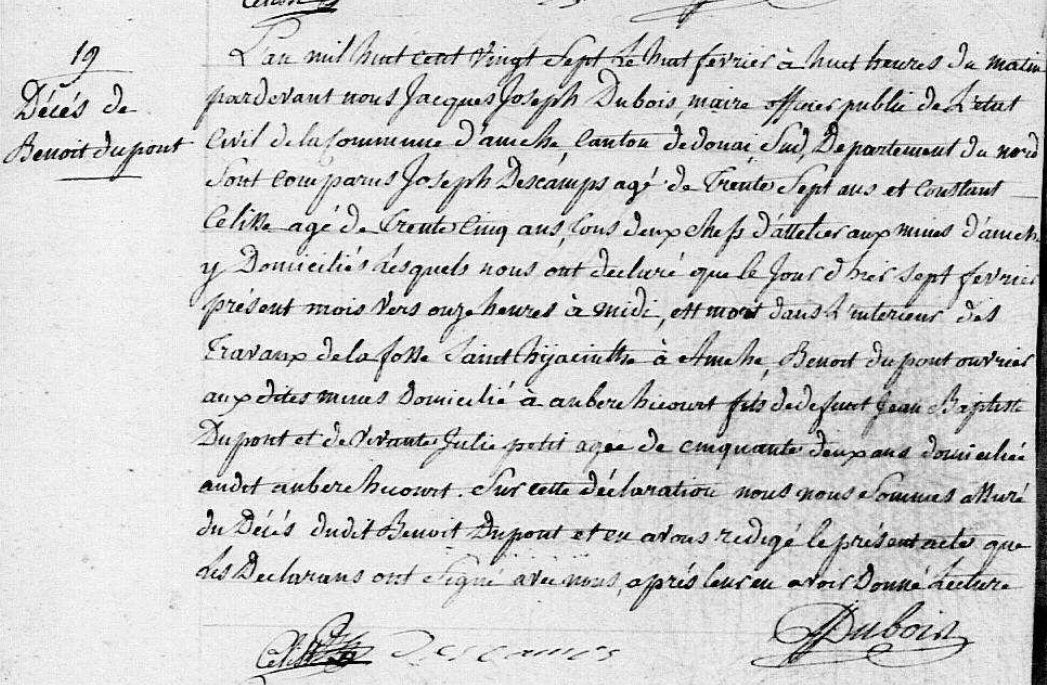 19
Décés de
Benoit dupont
L'an mil huit cent vingt Sept Le huit fevrier à huit heures du matin
pardevant nous Jacques Joseph Dubois, maire officier public de L'état
Civil de la Commune d'aniche, Canton de douai Sud, Departement du nord
Sont comparus Joseph Descamps agé de Trente Sept ans et Constant
Celisse agé de Trente Cinq ans, tous deux chefs d'attelier aux mines d'aniche
y Domiciliés Lesquels nous ont declaré que le Jour d'hier sept fevrier
présent mois vers onze heures à midi, est mort dans L'interieur des
Travaux de la fosse Saint hyacinthe à Aniche, Benoit dupont ouvrier
aux dites mines Domicilié à auberchicourt fils de defunt Jean Baptiste
Dupont et de vivante Julie petit agée de cinquante deux ans domiciliée
audit auberchicourt. Sur cette déclaration nous nous Sommes assuré
du Décés dudit Benoit Dupont et en avons redigé le présent acte que
les Declarans ont Signé avec nous, aprés leur en avoir Donné Lecture
Celisse Descamps Dubois